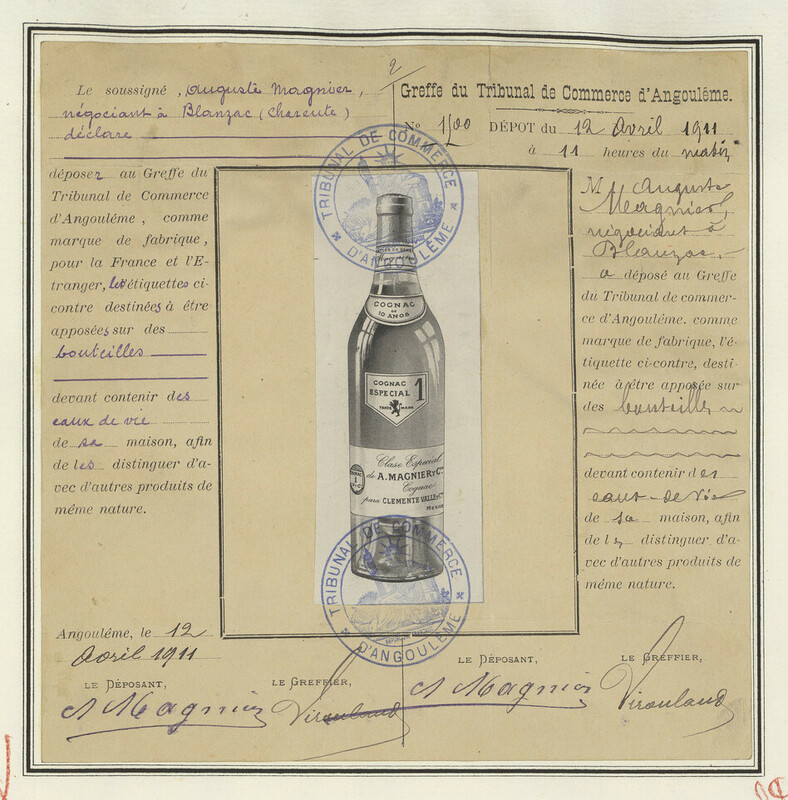 2
Le soussigné, Auguste Magnier,
négociant à Blanzac (Charente)
déclare
déposer au Greffe du
Tribunal de Commerce
d'Angoulême, comme
marque de fabrique,
pour la France et l'E-
tranger, les étiquettes ci-
contre destinées à être
apposées sur des
bouteilles
devant contenir des
eaux de vie
de sa maison, afin
de les distinguer d'a-
vec d'autres produits de
même nature.
Angoulême, le 12
Avril 1911
LE DÉPOSANT,
A Magnier
LE GREFFIER,
Virouland
TRIBUNAL DE COMMERCE
D'ANGOULÊME
COGNAC
10 AÑOS
COGNAC
ESPECIAL 1
TRADE MARK
Clase Especial
de A. MAGNIER Y Cia
Cognac
para CLEMENTE VALLE Y Cia
TRIBUNAL DE COMMERCE
D'ANGOULÊME
Greffe du Tribunal de Commerce d'Angoulême.
No 1500 DÉPOT du 12 Avril 1911
à 11 heures du matin
M. Auguste
Magnier,
négociant à
Blanzac,
a déposé au Greffe
du Tribunal de commer-
ce d'Angoulême. comme
marque de fabrique, l'é-
tiquette ci-contre, desti-
née à être apposée sur
des bouteilles
devant contenir des
eaux-de-vie
de sa maison, afin
de les distinguer d'a-
vec d'autres produits de
même nature.
LE DÉPOSANT,
A Magnier
LE GREFFIER,
Virouland